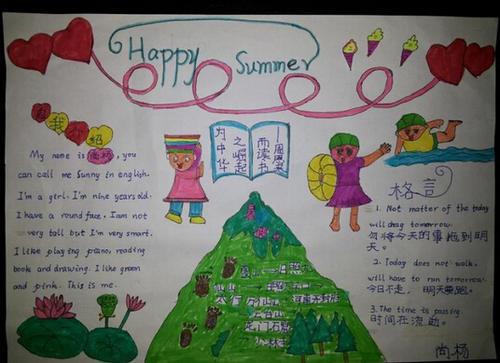 Happy Summer
自我介绍
My name is 尚杨, you
can call me Sunny in english.
I'm a girl. I'm nine years old.
I have a round face. I am not
very tall but I'm very smart.
I like playing piano, reading
book and drawing. I like green
and pink. This is me.
为中华
之崛起
而读书
——周恩来
格言
1. Not matter of the today
will drag tomorrow.
勿将今天的事拖到明
天。
2. Today does not walk,
will have to run tomorrow.
今日不走，明天要跑。
3. The time is passing
时间在流动。
尚杨